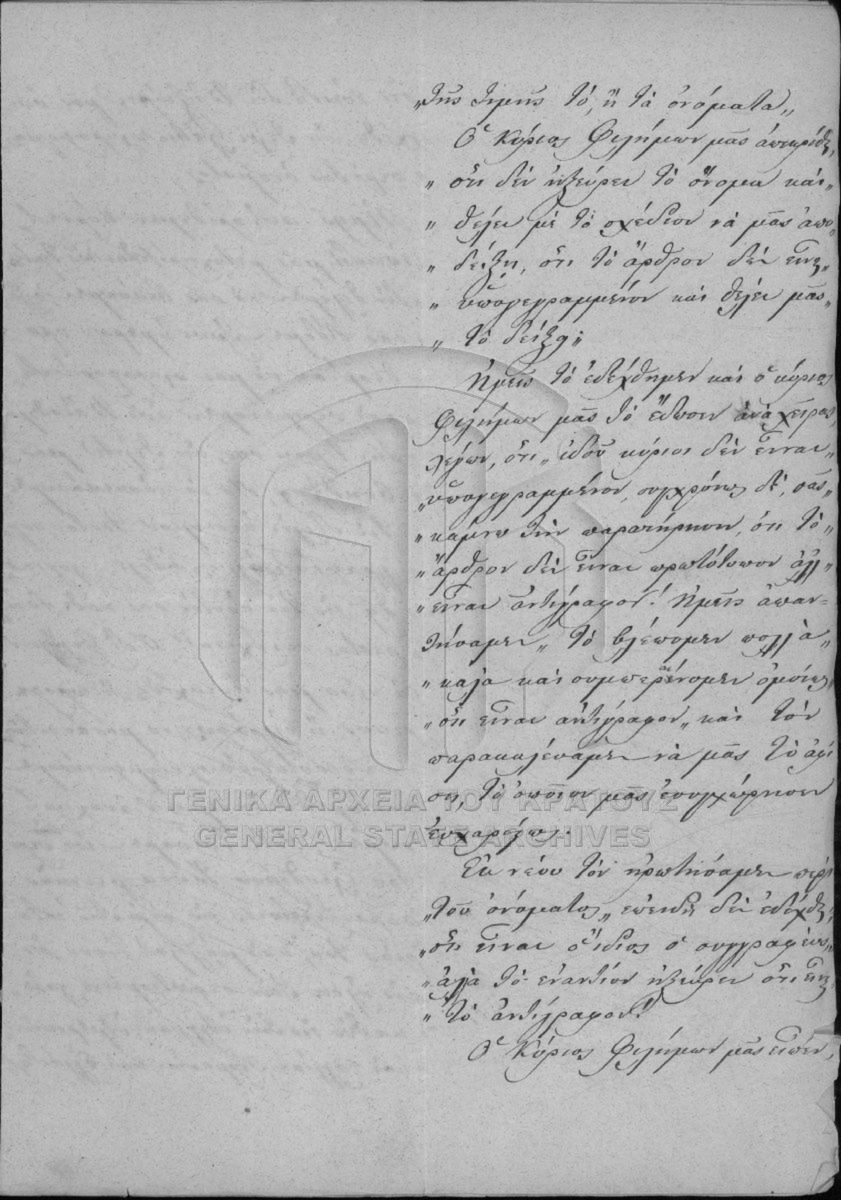 „τῆς τιμῆς τὸ, ἢ τὰ ὀνόματα„
Ὁ Κύριος Φιλήμων μᾶς ἀπεκρίθη,
„ ὅτι δὲν ἠξεύρει τὸ ὄνομα καὶ „
„ θέλει μὲ τὸ σχέδιον νὰ μᾶς ἀπο-
„ δείξῃ, ὅτι τὸ ἄρθρον δὲν εἶναι „
„ ὑπογεγραμμένον καὶ θέλει μᾶς „
„ τὸ δείξῃ;
Ἡμεῖς τὸ ἐδέχθημεν καὶ ὁ κύριος
Φιλήμων μᾶς τὸ ἔδωσεν ἀνὰ χεῖρας,
λέγων, ὅτι „ ἰδοὺ κύριοι δὲν εἶναι „
„ ὑπογεγραμμένον, συγχρόνως δὲ, σᾶς „
„ κάμνω τὴν παρατήρησιν, ὅτι τὸ „
„ ἄρθρον δὲν εἶναι πρωτότυπον ἀλλ „
„ εἶναι ἀντίγραφον! Ἡμεῖς ἀπαν-
τήσαμεν „ τὸ βλέπομεν πολλὰ „
„ καλα καὶ συμπεραίνομεν ὁμοίως
„ ὅτι εἶναι ἀντίγραφον „ καὶ τὸν
παρακαλέσαμεν νὰ μᾶς τὸ ἀφί
σῃ, τὸ ὁποῖον μᾶς ἐσυγχώρησεν
εὐχαρίστως.
Ἐκ νέου τὸν ἠρωτήσαμεν περὶ
„ τοῦ ὀνόματος „ ἐπειδὴ δὲν ἐδέχθη,
„ ὅτι εἶναι ὁ ἴδιος ὁ συγγραφεὺς „
„ ἀλλὰ τὸ ἐναντίον ἠξεύρει ὅτι εἶναι
„ τὸ ἀντίγραφον!
Ὁ Κύριος Φιλήμων μᾶς εἶπεν,
ΓΕΝΙΚΑ ΑΡΧΕΙΑ ΤΟΥ ΚΡΑΤΟΥΣ
GENERAL STATE ARCHIVES